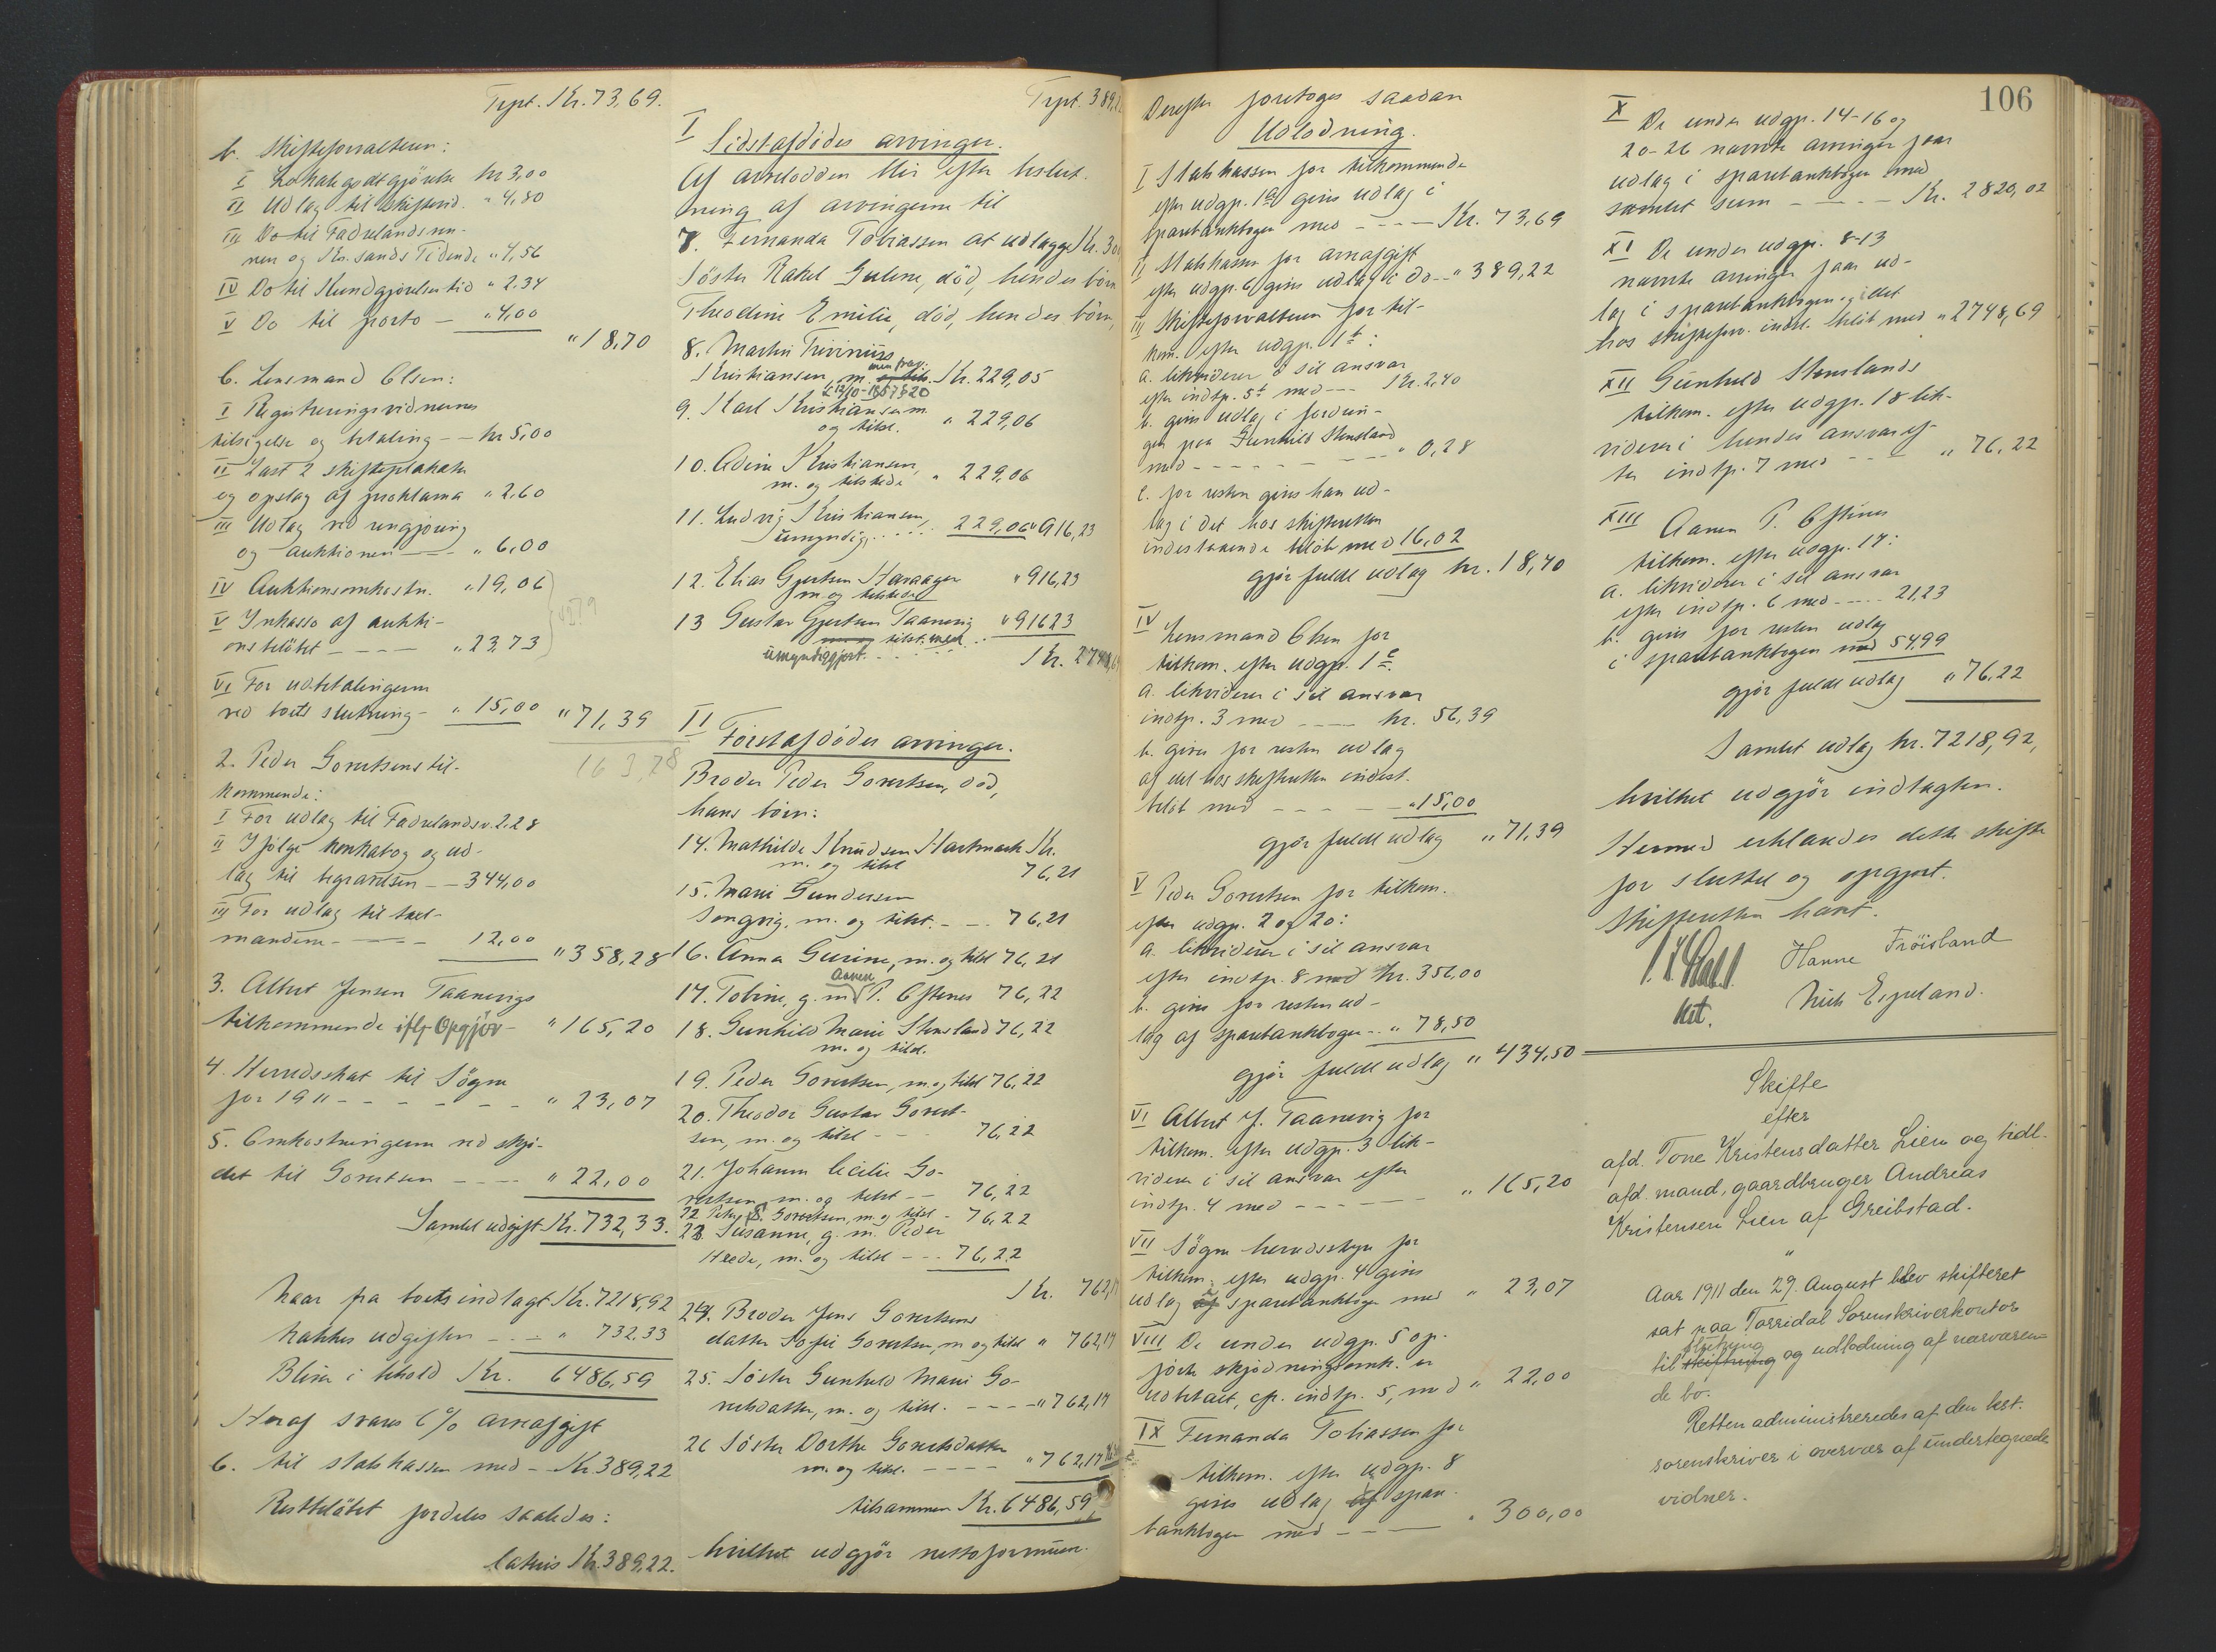 Trpt. Kr. 73,69.
b. Skifteforvalteren:
I Lokalegodtgjörelse kr 3,00
II Udlag til skiftevid. " 4,80
III Do til Fædrelandsven-
nen og Kr.sands Tidende " 4,56
IV Do til Kundgjörelsestid " 2.34
V Do til porto — " 4,00
" 18,70
C. Lensmand Olsen:
I Registreringsvidnernes
tilsigelse og betaling - - kr 5,00
II Læst 2 skifteplakater
og opslag af proklama " 2,60
III Udlag ved rengjöring
og auktionen — " 6,00
IV Auktionsomkostn. " 19,06
V Inkasso af aukti-
onsbelöbet - - - - " 23,73
VI For udbetalingerne
ved boets slutning - " 15,00 " 71,39
163,78
2. Peder Govertsens til-
kommende:
I For udlag til Fædrelandsv. 2.28
II Ifölge kontrabog og ud-
lag til begravelsen - - 344,00
III For udlag til tael-
mændene - - - - 12,00
" 358,28
3. Albert Jensen Taanevigs
tilkommende iflg. Opgjör - " 165,20
4. Herredsskat til Sögne
for 1911 - - - - - - " 23,07
5. Omkostningerne ved skjö-
det til Govertsen - - - - " 22,00
Samlet udgift Kr. 732,33.
Naar fra boets indtægt Kr. 7218,92
trækkes udgiften - - - " 732,33
Bliver i behold Kr. 6486,59
Heraf svares 6% arveafgift
6. til statskassen med - Kr. 389,22
Restbelöbet fordeles saaledes:
Latus Kr. 389,22.
Trpt. 389,2
I
Sidstafdödes arvinger.
Af arvelodden blir efter beslut-
ning af arvingerne til
7. Fernanda Tobiassen at udlægge Kr. 300
Söster Rakel Gurine, död, hendes börn
Theodine Emilie, död, hendes börn,
8. Martin Trivinius
Kristiansen, m. men frav. og tilst. Kr. 229,05
f. 12/10-1887
9. Karl Kristiansen m.
og tilst. " 229,06
10. Adine Kristiansen,
m. og tilstede " 229,06
11. Ludvig Kristiansen,
umyndig, . . . . . 229,06 " 916,23
12. Elias Gjertsen Havaager
m. og tilstede " 916,23
13 Gustav Gjertsen Taanevig " 916 23
tilst. med
umyndiggjort. . . . . .
Kr. 2748,6
II
Förstafdödes arvinger.
Broder Peder Govertsen, död,
hans börn:
14. Mathilde Knudsen Hartmark Kr.
m. og tilst 76,21
15. Marie Gundersen
Songvig, m. og tilst. - - 76,21
16. Anna Gurine, m. og tilst 76,21
17. Tobine, g. m. Aanen P. Eftenes 76,22
18. Gunhild Marie Stensland 76,22
m. og tilst.
19. Peder Govertsen, m. og tilst 76,22
20. Theodor Gustav Govert-
sen, m. og tilst - - 76,22
21. Johanne Cecilie Go-
vertsen, m. og tilst - - 76,22
22 Peter S. Govertsen, m. og tilst - 76,22
23. Susanne, g. m. Peder
Heede, m. og tilst - - - 76,22
Kr. 762,17
24. Broder Jens Govertsens
datter Sofie Govertsen, m og tilst " 762,17
25. Söster Gunhild Marie Go-
vertsdatter, m. og tilst. - - - - " 762,17
26 Söster Dorthe Govertsdatter
m. og tilst. - - - - " 762,17
tilsammen Kr. 6486,59,
hvilket udgjör nettoformuen.
Derefter foretoges saadan
Udlodning.
I Statskassen for tilkommende
efter udgp. 1a gives udlag i
sparebankbogen med - - - - Kr. 73,69
II Statskassen for arveafgift
efter udgp. 6 gives udlag i do - - " 389,22
III Skifteforvalteren for til-
kom. efter udgp. 1b:
a. likviderer i sit ansvar
efter indtp. 5t med - - - Kr. 2,40
b. gives udlag i fordrin-
gen paa Gunhild Stensland
med - - - - - - - - - " 0,28
c. for resten gives han ud-
lag i det hos skifteretten
indestaaende belöb med 16,02
gjör fuldt udlag kr. 18,70
IV
Lensmand Olsen for
tilkom. efter udgp. 1c.
a. likviderer i sit ansvar
indtp. 3 med - - - - kr. 56,39
b. gives for resten udlag
af det hos skifteretten indest.
belöb med - - - - - " 15,00
gjör fuldt udlag " 71,39
V Peder Govertsen for tilkom.
efter udgp. 2 og 20:
a. likviderer i sit ansvar
efter indtp. 8 med kr. 356,00
b. gives for resten ud-
lag af sparebankbogen - - " 78,50
gjör fuldt udlag " 434,50
VI Albert J. Taanevig for
tilkom. efter udgp. 3 lik-
viderer i sit ansvar efter
indtp. 4 med - - - - - " 165,20
VII Sögne herredsstyre for
tilkom. efter udgp. 4 gives
udlag i sparebankbogen med " 23,07
VIII De under udgp. 5 op-
förte skjödningsomk. er
udbetalt, cfr. indtp. 5, med " 22,00
IX Fernanda Tobiassen for
tilkom. efter udgp. 8
gives udlag i spare-
bankbogen med - - - - " 300,00
106
X De under udgp. 14-16 og
20-26 nævnte arvinger faar
udlag i sparebankbogen med
samlet sum - - - - - Kr. 2820,02
XI De under udgp. 8-13
nævnte arvinger faar ud-
lag i sparebankbogen og i det
hos skifteforv. indst. belöb med " 2748,69
XII Gunhild Stenslands
tilkom. efter udgp. 18 lik-
videres i hendes ansvar ef-
ter indtp. 7 med - - - - " 76,22
XIII Aanen P. Eftenes
tilkom. efter udgp. 17:
a. likviderer i sit ansvar
efter indtp. 6 med - - - - 21,23
b. gives for resten udlag
i sparebankbogen med 54,99
gjör fuldt udlag " 76,22
Samlet udlag kr. 7218,92,
hvilket udgjör indtægten.
Hermed erklæredes dette skifte
for sluttet og opgjort.
Skifteretten hævet.
Hanne Fröisland
kst. Nils Espeland.
Skifte
efter
afd. Tone Kristensdatter Lien og tidl.
afd. mand, gaardbruger Andreas
Kristensen Lien af Greibstad.
"
Aar 1911 den 29. August blev skifteret
sat paa Torridal Sorenskriverkontor
til skiftning slutning og udlodning af nærværen-
de bo.
Retten administreredes af den kst.
sorenskriver i overvær af undertegnede
vidner.